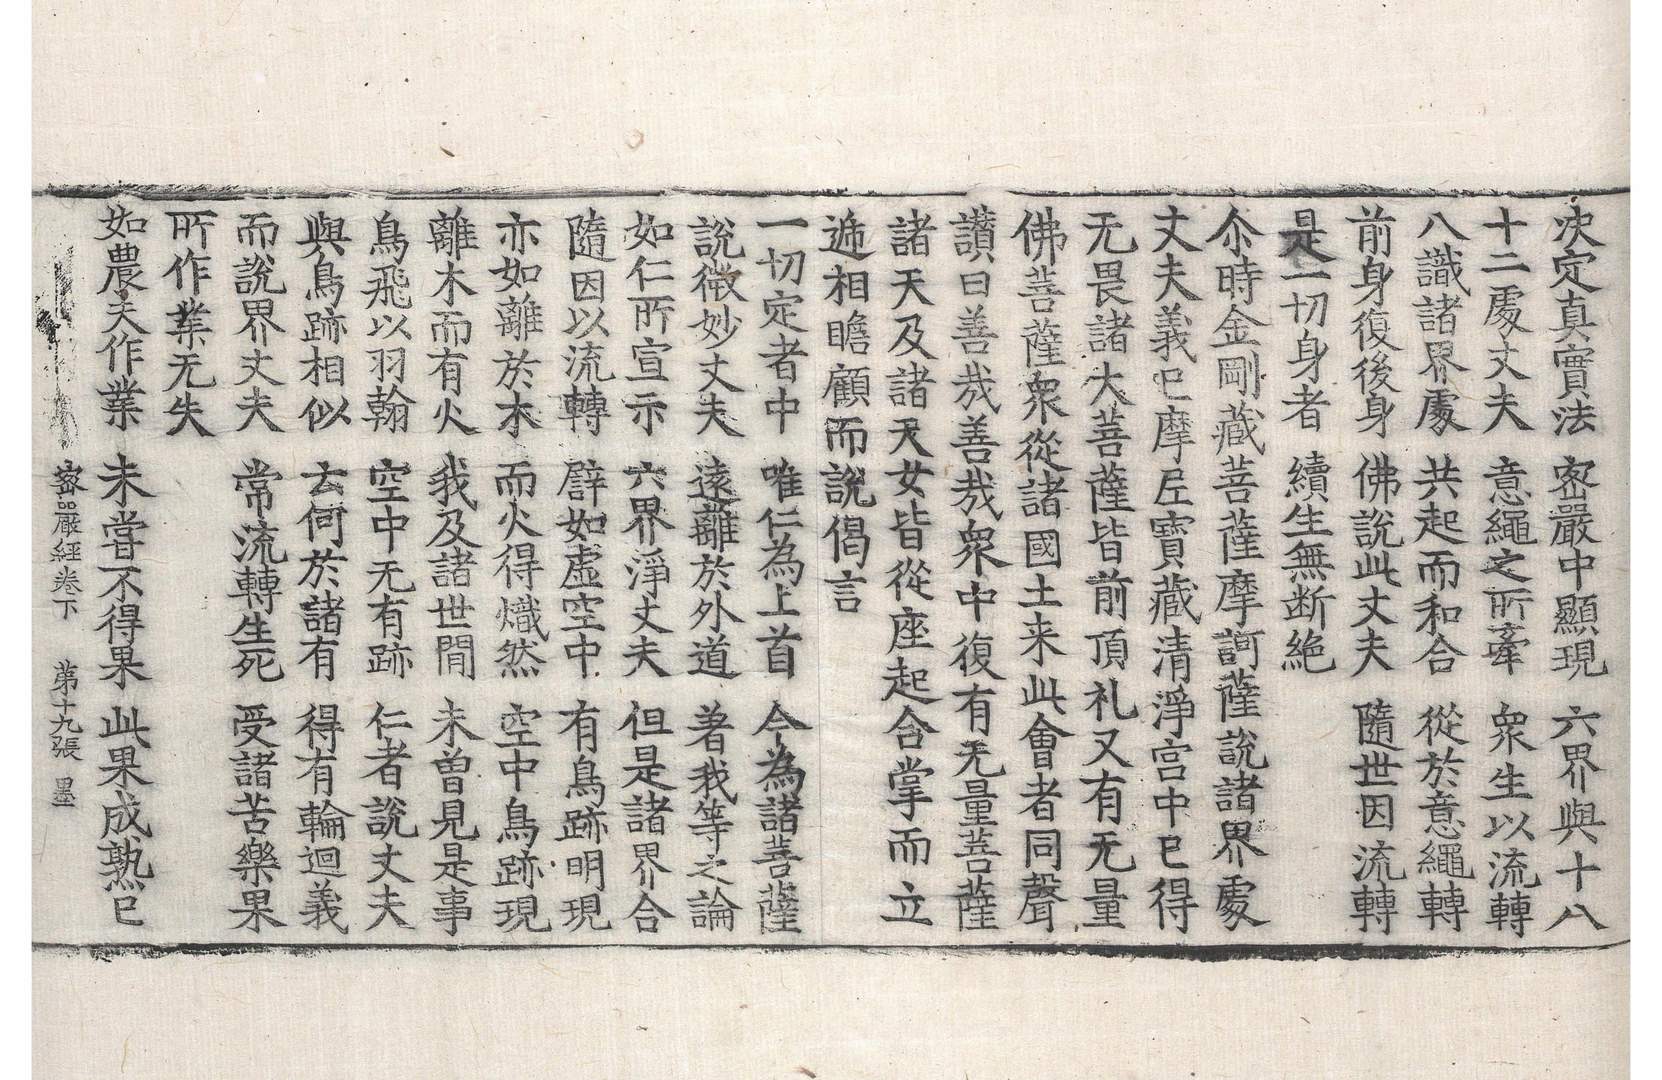 决定真實法　密嚴中顯現　六界與十八
十二處丈夫　意繩之所牽　衆生以流轉
八識諸界處　共起而和合　從於意繩轉
前身復後身　佛說此丈夫　隨世因流轉
是一切身者　續生無断絶
尒時金剛藏菩薩摩訶薩說諸界處
丈夫義已摩尼寶藏清淨宮中已得
无畏諸大菩薩皆前頂礼又有无量
佛菩薩衆從諸國土来此會者同聲
讚曰善哉善哉衆中復有无量菩薩
諸天及諸天女皆從座起合掌而立
遞相瞻顧而說偈言
一切定者中　唯仁為上首　今為諸菩薩
說微妙丈夫　遠離於外道　著我等之論
如仁所宣示　六界淨丈夫　但是諸界合
隨因以流轉　譬如虛空中　有鳥跡明現
亦如離於木　而火得熾然　空中鳥跡現
離木而有火　我及諸世間　未曾見是事
鳥飛以羽翰　空中无有跡　仁者說丈夫
與鳥跡相似　云何於諸有　得有輪迴義
而說界丈夫　常流轉生死　受諸苦樂果
所作業无失
如農夫作業　未嘗不得果　此果成熟已
密嚴經卷下　第十九張　墨